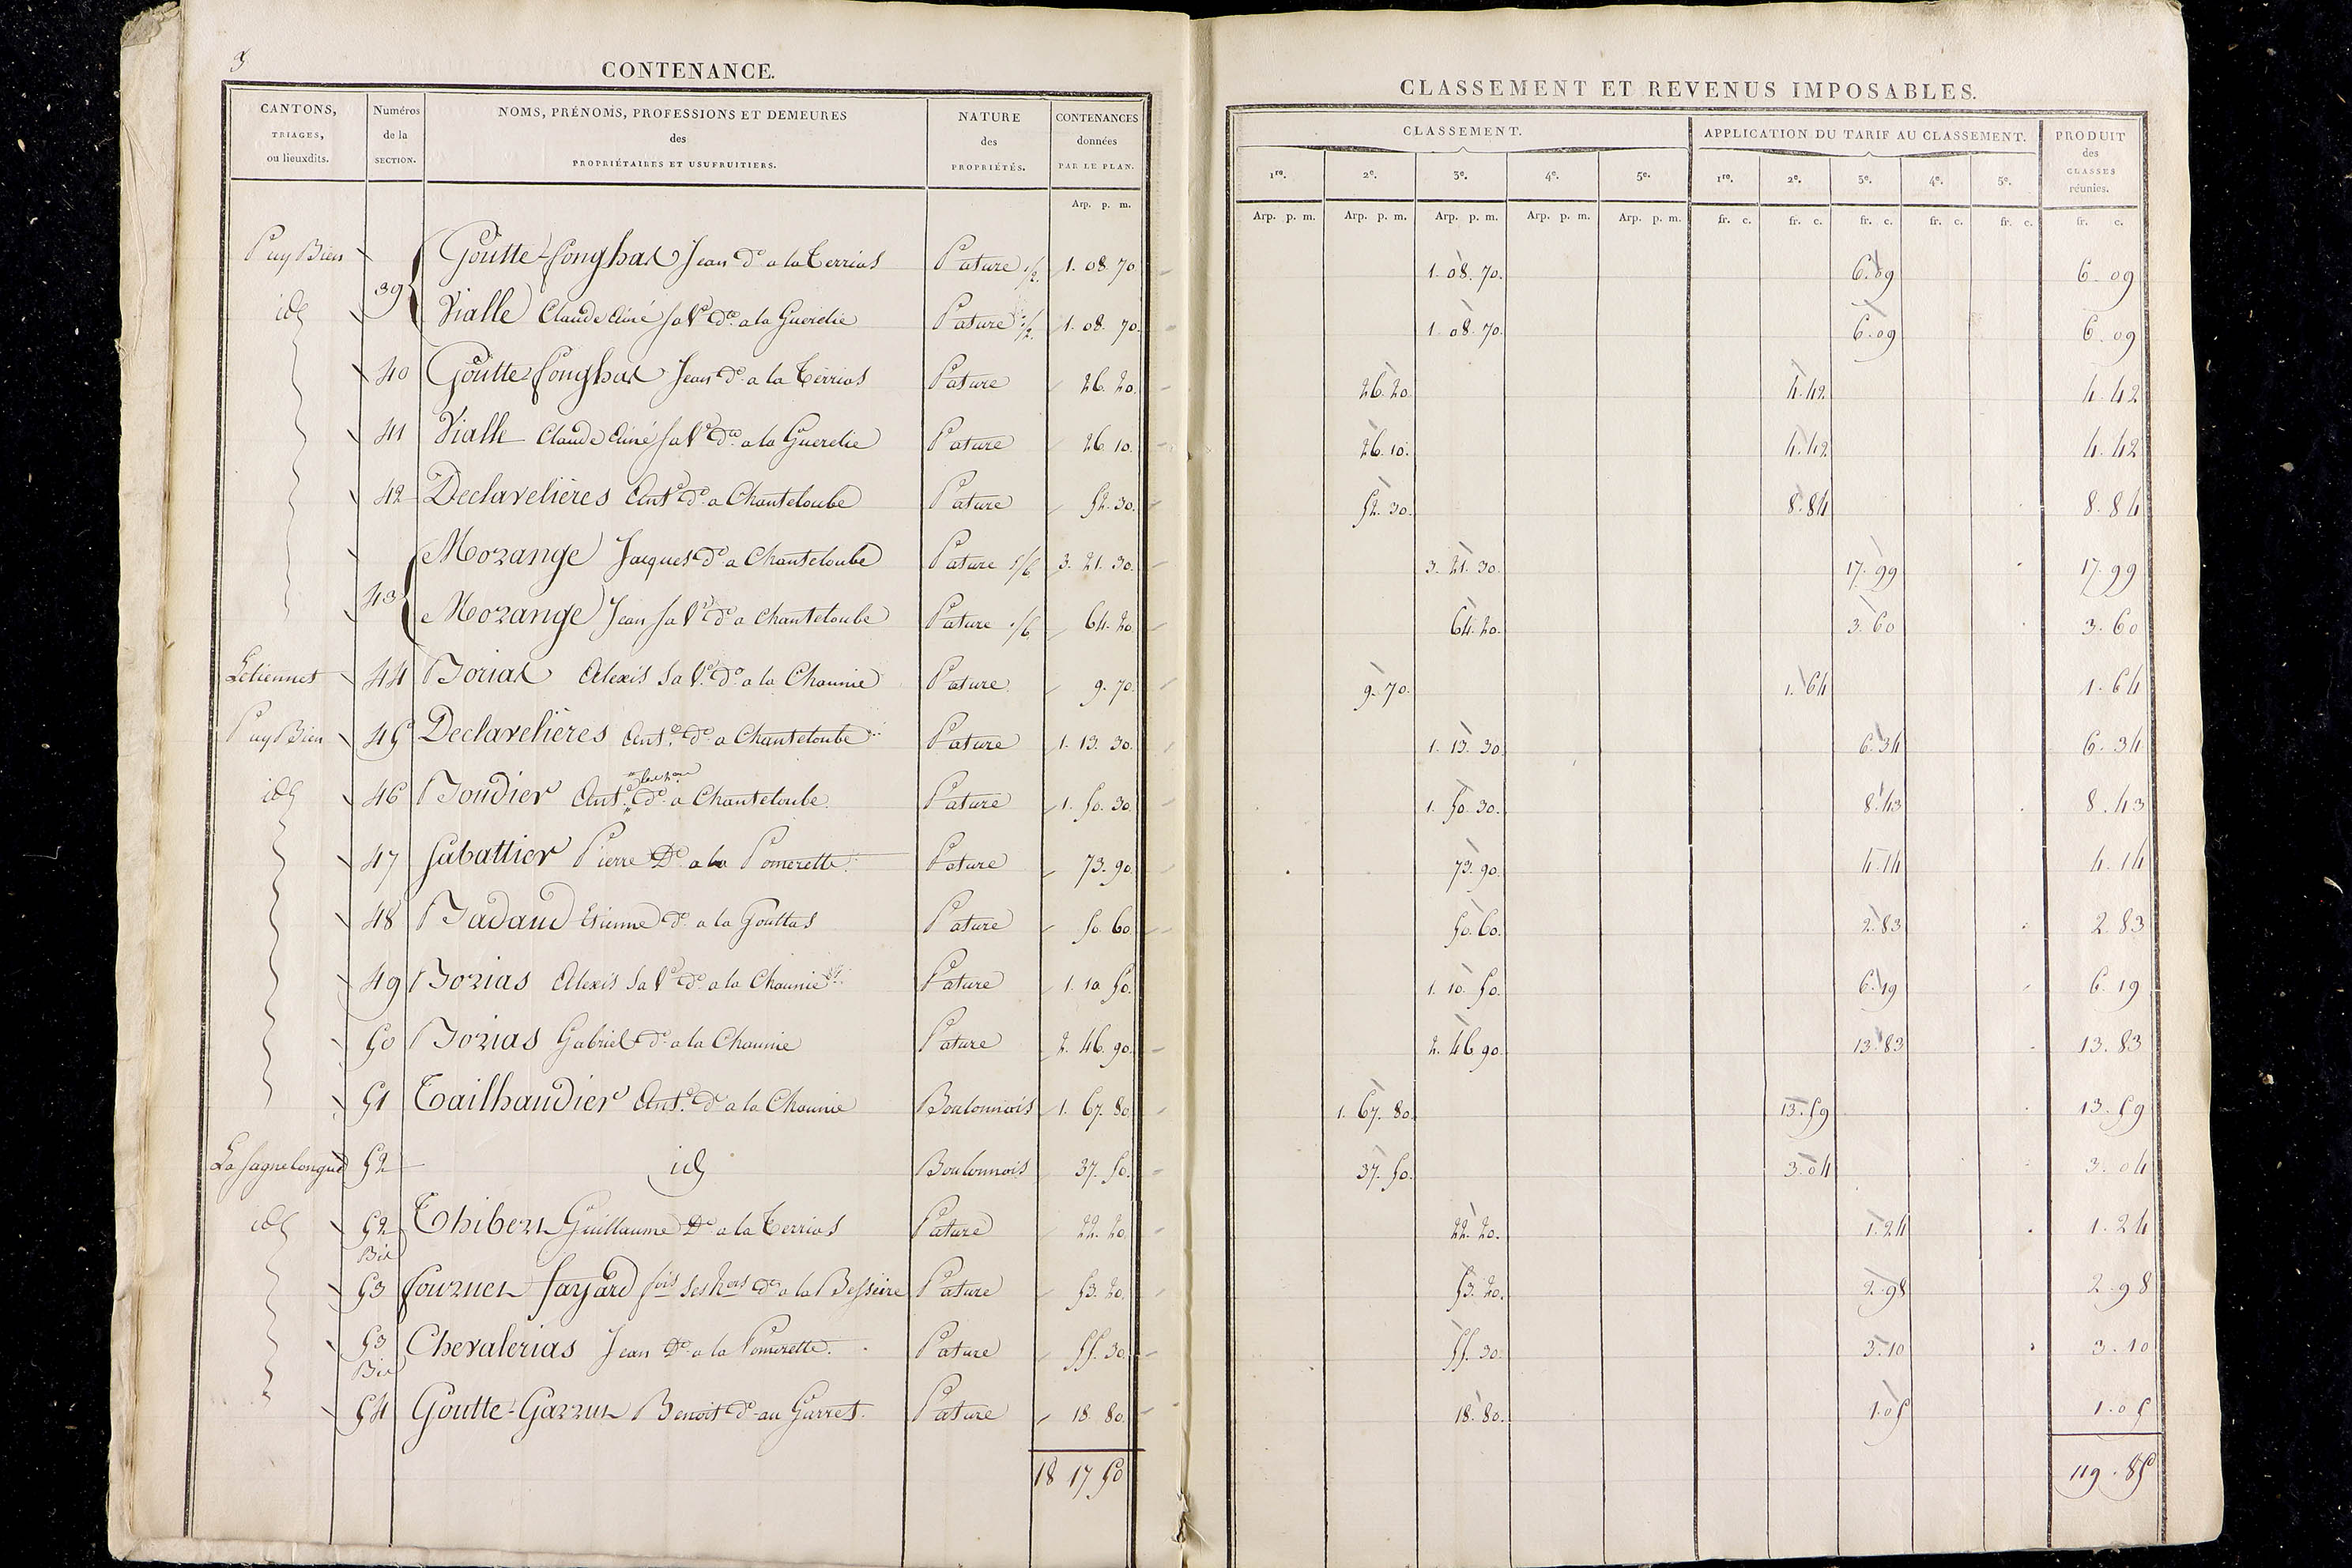 3
CONTENANCE.
CANTONS, TRIAGES, ou lieuxdits. | Numéros de la SECTION. | NOMS, PRÉNOMS, PROFESSIONS ET DEMEURES des PROPRIÉTAIRES ET USUFRUITIERS. | NATURE des PROPRIÉTÉS. | CONTENANCES données PAR LE PLAN.
Arp. p. m.
CLASSEMENT ET REVENUS IMPOSABLES.
CLASSEMENT. | APPLICATION DU TARIF AU CLASSEMENT. | PRODUIT des CLASSES réunies.
1re. | 2e. | 3e. | 4e. | 5e. | 1re. | 2e. | 3e. | 4e. | 5e.
Arp. p. m. | Arp. p. m. | Arp. p. m. | Arp. p. m. | Arp. p. m. | fr. c. | fr. c. | fr. c. | fr. c. | fr. c. | fr. c.
Puy Bien | 39 | Goutte-fonghas Jean do a la Terrias | Pature 1/2 | 1. 08. 70. | 1. 08. 70. | 6.09 | 6.09
id | Vialle Claude Ainé sa Ve do a la Guerelie | Pature 1/2 | 1. 08. 70. | 1. 08. 70. | 6.09 | 6.09
40 | Goutte-fonghas Jean do a la Terrias | Pature | 26. 20. | 26. 20. | 4.42 | 4.42
41 | Vialle Claude Ainé sa Ve do a la Guerelie | Pature | 26 10. | 26. 10. | 4.42 | 4.42
42 | Declavelières Ant.e do a Chanteloube | Pature | 52. 30. | 52. 30. | 8.84 | 8.84
43 | Morange Jacques do a Chanteloube | Pature 5/6 | 3. 21. 30. | 3. 21. 30. | 17.99 | 17.99
Morange Jean sa Ve do a Chanteloube | Pature 1/6 | 64. 20 | 64. 20. | 3.60 | 3.60
Letiennet | 44 | Borias Alexis sa Ve do a la Chaunie | Pature | 9. 70 | 9. 70. | 1.64 | 1.64
Puy Bien | 45 | Declavelières Ant.e do a Chanteloube | Pature | 1. 13. 30. | 1. 13. 30 | 6.34 | 6.34
id | 46 | Boudier Ant.e do a Chanteloube | Pature | 1. 50. 30. | 1. 50. 30. | 8.43 | 8.43
47 | Sabattier Pierre Do a la Pomerette | Pature | 73. 90. | 73. 90. | 4.14 | 4.14
48 | Badaud Etienne do a la Gouttas | Pature | 50. 60. | 50. 60. | 2.83 | 2.83
49 | Borias Alexis sa Ve do a la Chaunie | Pature | 1. 10. 50. | 1. 10. 50. | 6.19 | 6.19
50 | Borias Gabriel do a la Chaunie | Pature | 2. 46. 90. | 2. 46. 90. | 13.83 | 13.83
51 | Tailhandier Ant.e do a la Chaunie | Boulonnois | 1. 67. 80. | 1. 67. 80. | 13.59 | 13.59
La Sagnelongue | 52 | id | Boulonnois | 37. 50. | 37. 50. | 3.04 | 3.04
id | 52 Bis | Thibert Guillaume Do a la Terrias | Pature | 22. 20. | 22. 20. | 1.24 | 1.24
53 | fournet fayard fois ses hers do a la Besseire | Pature | 53. 20. | 53. 20. | 2.98 | 2.98
53 Bis | Chevalerias Jean Do a la Pomerette. | Pature | 55. 30. | 55. 30. | 3.10 | 3.10
54 | Goutte-Garret Benoit do au Garret. | Pature | 18. 80. | 18. 80. | 1.05 | 1.05
18 17 50 | 119.85